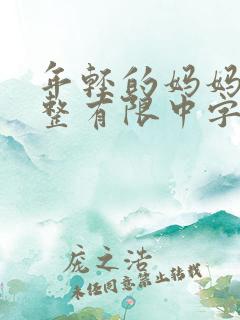 年轻的妈妈
整有限中字
庞之浩
未经同意禁止转载